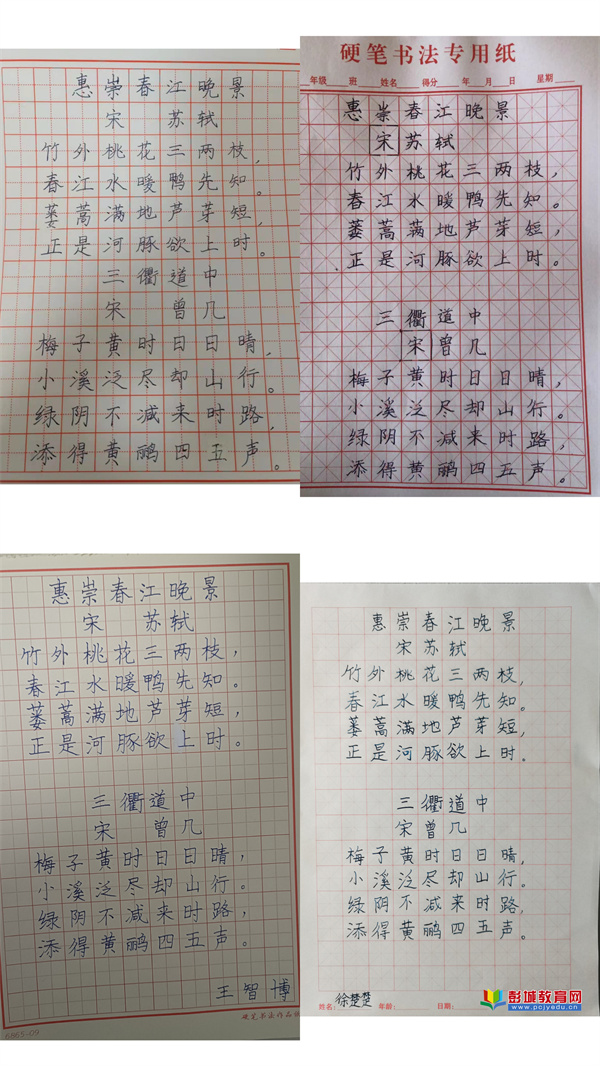 惠崇春江晚景
宋 苏轼
竹外桃花三两枝，
春江水暖鸭先知。
蒌蒿满地芦芽短，
正是河豚欲上时。
三衢道中
宋 曾几
梅子黄时日日晴，
小溪泛尽却山行。
绿阴不减来时路，
添得黄鹂四五声。
硬笔书法专用纸
年级 班 姓名 得分 年 月 日 星期
惠崇春江晚景
宋苏轼
竹外桃花三两枝，
春江水暖鸭先知。
蒌蒿满地芦芽短，
正是河豚欲上时。
三衢道中
宋曾几
梅子黄时日日晴，
小溪泛尽却山行。
绿阴不减来时路，
添得黄鹂四五声。
惠崇春江晚景
宋 苏轼
竹外桃花三两枝，
春江水暖鸭先知。
蒌蒿满地芦芽短，
正是河豚欲上时。
三衢道中
宋 曾几
梅子黄时日日晴，
小溪泛尽却山行。
绿阴不减来时路，
添得黄鹂四五声。
王智博
硬笔书法作品
6865-05
惠崇春江晚景
宋苏轼
竹外桃花三两枝，
春江水暖鸭先知。
蒌蒿满地芦芽短，
正是河豚欲上时。
三衢道中
宋曾几
梅子黄时日日晴，
小溪泛尽却山行。
绿阴不减来时路，
添得黄鹂四五声。
姓名：徐楚楚 年龄： 日期：
彭城教育网
www.pcjyedu.cn